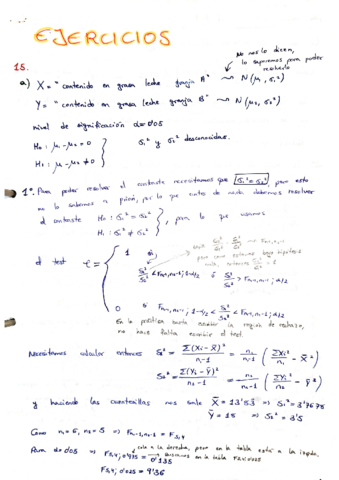 EJERCICIOS
15.
No nos lo dicen,
lo suponemos para poder
resolverlo
a) X = " contenido en grasa leche granja B" ~ N(μ₁, σ₁²)
Y = " contenido en grasa leche granja B" ~ N(μ₂, σ₂²)
nivel de significación α=0'05
H₀ : μ₁-μ₂ = 0
H₁ : μ₁-μ₂ ≠ 0
σ₁² y σ₂² desconocidas.
1º. Para poder resolver el contraste necesitamos que σ₁²=σ₂², pero esto
no lo sabemos a priori, por lo que antes de nada debemos resolver
el contraste H₀ : σ₁² = σ₂²
H₁ : σ₁² ≠ σ₂²
para lo que usamos
el test τ =
1 si
S₁²/S₂² < Fn₁-1,n₂-1; 1-α/2 ó S₁²/S₂² > Fn₁-1,n₂-1; α/2
0 si Fn₁-1,n₂-1; 1-α/2 < S₁²/S₂² < Fn₁-1,n₂-1; α/2
En la práctica basta escribir la región de rechazo,
no hace falta escribir el test.
Necesitamos calcular entonces S₁² = Σ(Xi-X̄)²/n₁-1 = n₁/n₁-1 (ΣXi²/n₁ - X̄²)
S₂² = Σ(Yi-Ȳ)²/n₂-1 = n₂/n₂-1 (ΣYi²/n₂ - Ȳ²)
y haciendo las cuentecillas nos sale X̄ = 13'53 ⇒ S₁² = 3'7675
Ȳ = 15 ⇒ S₂² = 3'5
Como n₁=6, n₂=5 ⇒ Fn₁-1,n₂-1 = F5,4
Para α=0'05 ⇒ F5,4; 0'975 = 0'135
cola a la derecha, pero en la tabla está a la izqda.
buscamos en la tabla
F5,4; 0'025 = 9'36